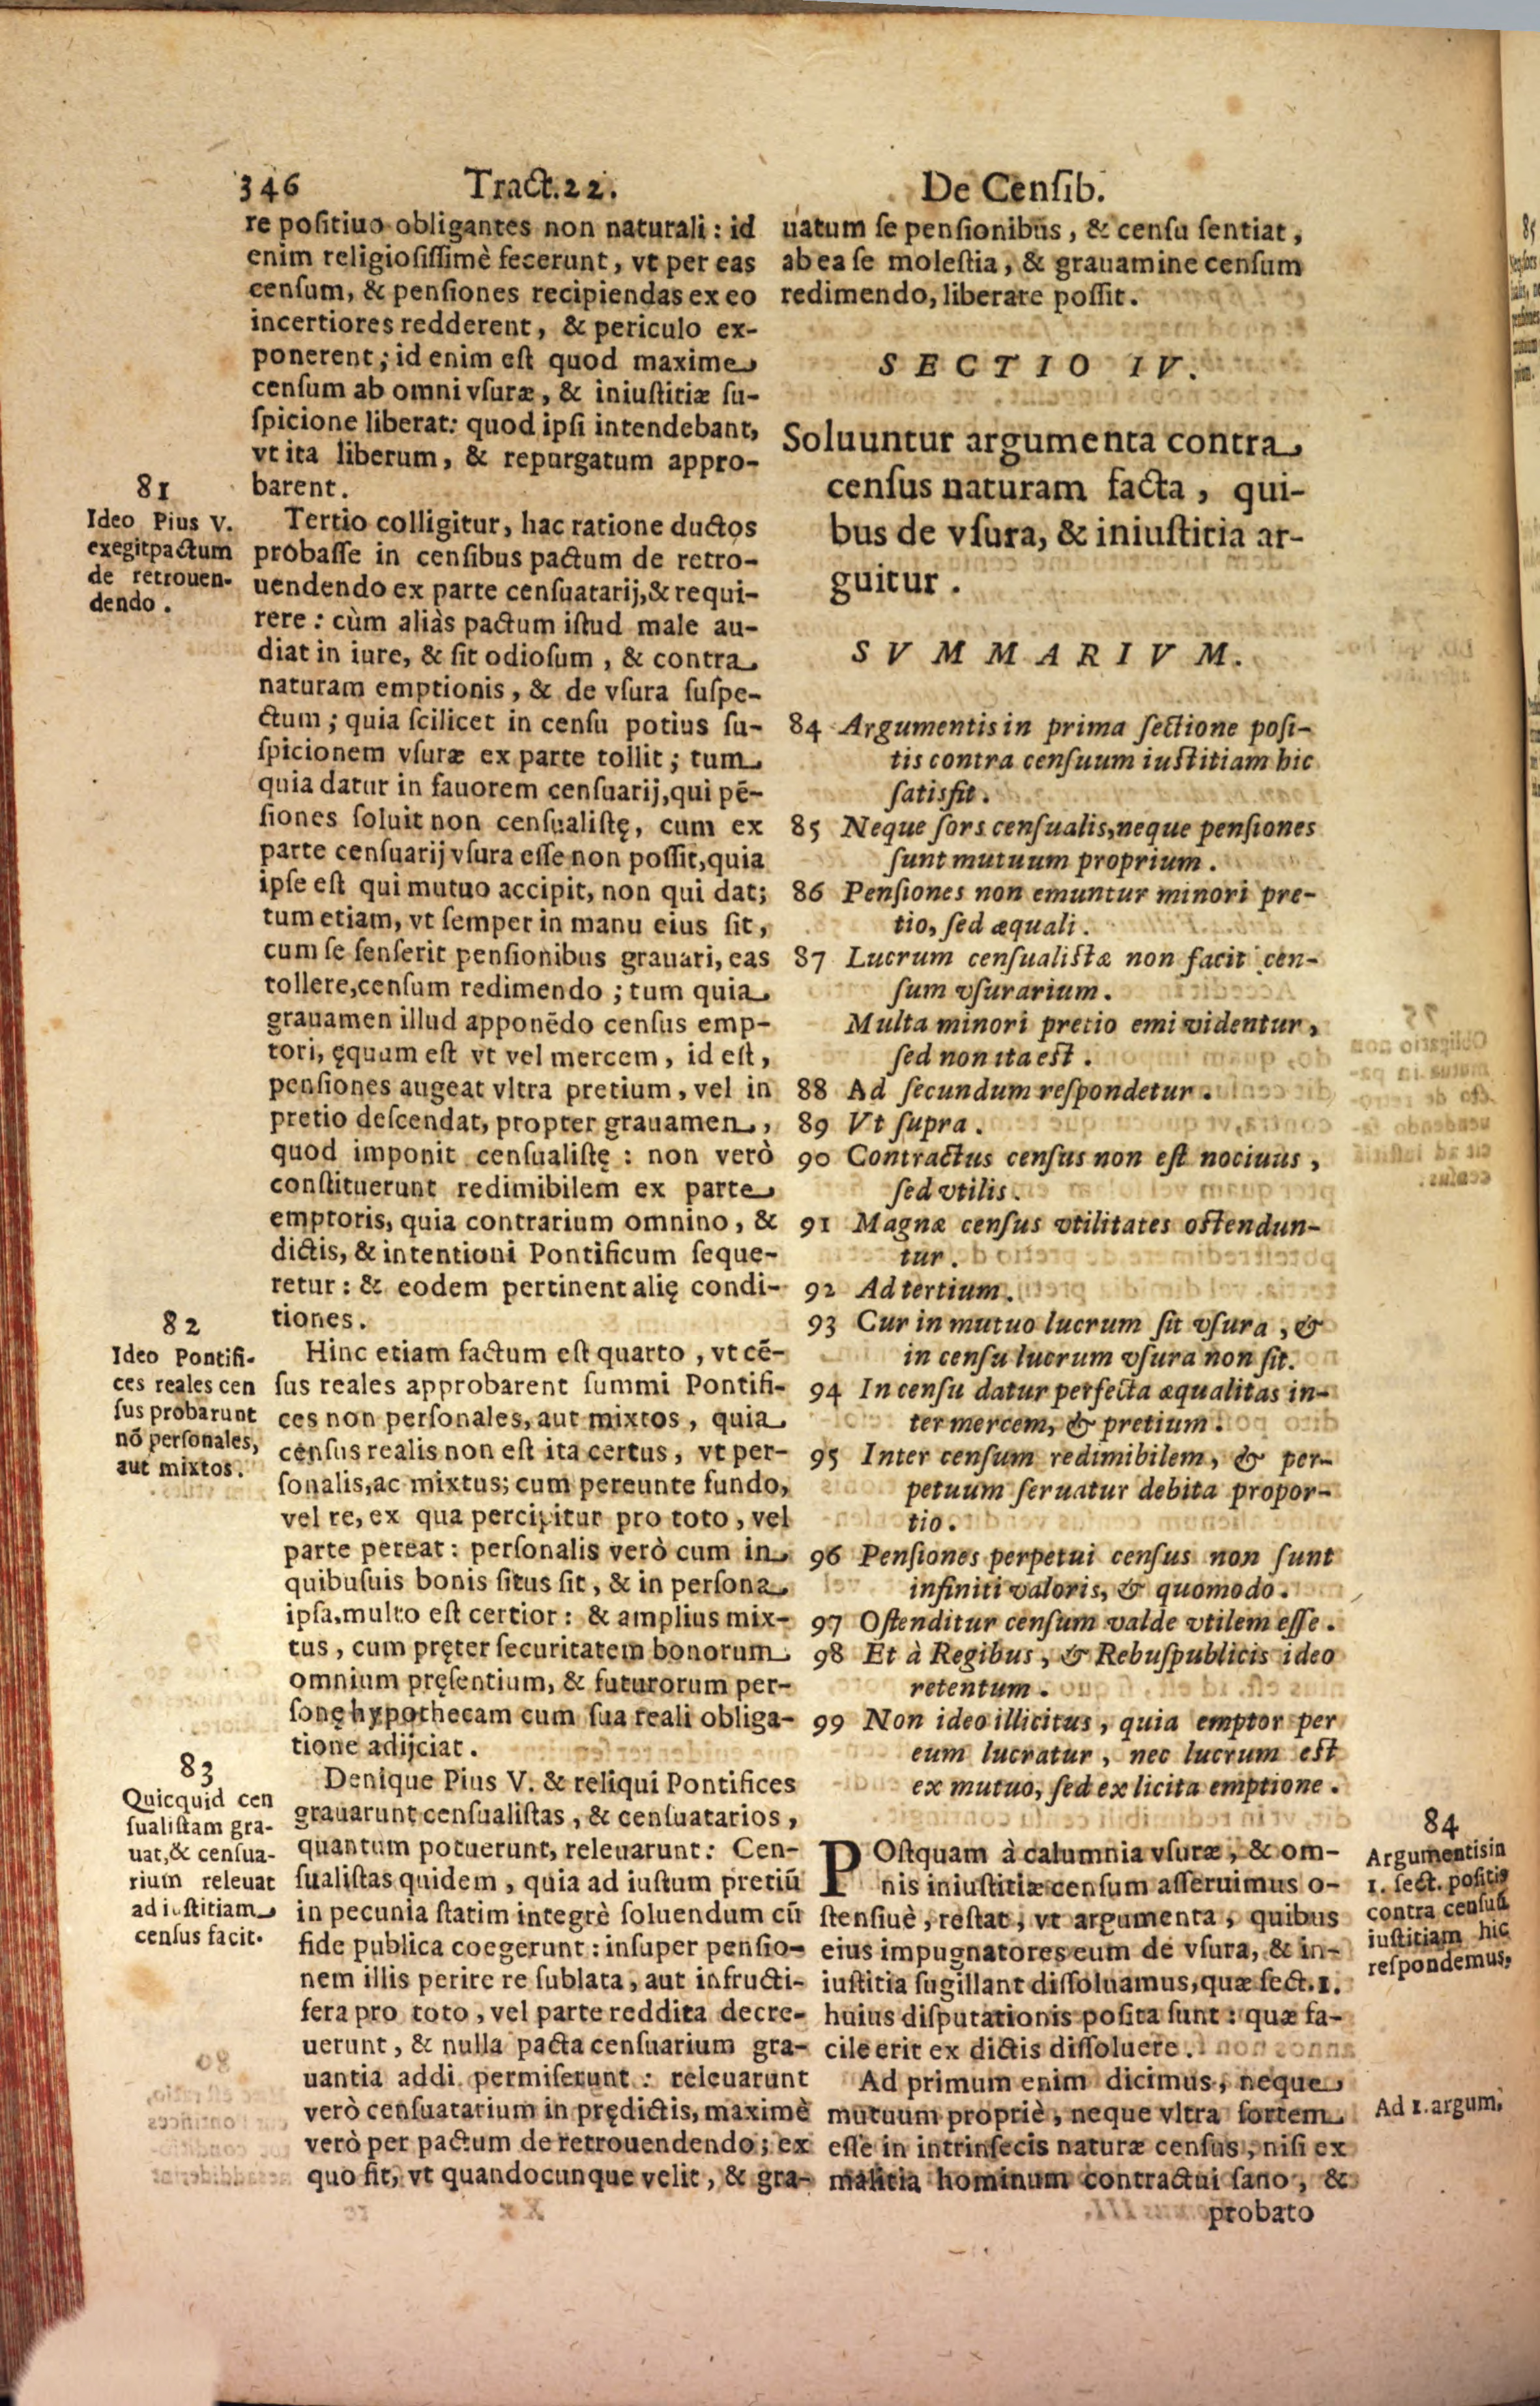 346 Tract.22. De Censib.
re positiuo obligantes non naturali: id
enim religiosissimè fecerunt, vt per eas
censum, & pensiones recipiendas ex eo
incertiores redderent, & periculo ex-
ponerent; id enim est quod maxime
censum ab omni vsuræ, & iniustitiæ su-
spicione liberat: quod ipsi intendebant,
vt ita liberum, & repurgatum appro-
barent.
81
Ideo Pius V.
exegit pactum
de retrouen-
dendo.
Tertio colligitur, hac ratione ductos
probasse in censibus pactum de retro-
uendendo ex parte censuatarij,& requi-
rere: cùm aliàs pactum istud male au-
diat in iure, & sit odiosum, & contra
naturam emptionis, & de vsura suspe-
ctum; quia scilicet in censu potius su-
spicionem vsuræ ex parte tollit; tum
quia datur in fauorem censuarij,qui pē-
siones soluit non censualistę, cum ex
parte censuarij vsura esse non possit,quia
ipse est qui mutuo accipit, non qui dat;
tum etiam, vt semper in manu eius sit,
cum se senserit pensionibus grauari, eas
tollere,censum redimendo; tum quia
grauamen illud apponēdo census emp-
tori, ęquum est vt vel mercem, id est,
pensiones augeat vltra pretium, vel in
pretio descendat, propter grauamen,
quod imponit censualistę: non verò
constituerunt redimibilem ex parte
emptoris, quia contrarium omnino, &
dictis, & intentioni Pontificum seque-
retur: & eodem pertinent alię condi-
tiones.
82
Ideo Pontifi-
ces reales cen
sus probarunt
nō personales,
aut mixtos.
Hinc etiam factum est quarto, vt cē-
sus reales approbarent summi Pontifi-
ces non personales, aut mixtos, quia
census realis non est ita certus, vt per-
sonalis,ac mixtus; cum pereunte fundo,
vel re, ex qua percipitur pro toto, vel
parte pereat: personalis verò cum in
quibusuis bonis situs sit, & in persona
ipsa,multo est certior: & amplius mix-
tus, cum pręter securitatem bonorum
omnium pręsentium, & futurorum per-
sonę hypothecam cum sua reali obliga-
tione adijciat.
83
Quicquid cen
sualistam gra-
uat,& censua-
rium releuat
ad iustitiam
census facit.
Denique Pius V. & reliqui Pontifices
grauarunt censualistas, & censuatarios,
quantum potuerunt, releuarunt: Cen-
sualistas quidem, quia ad iustum pretiū
in pecunia statim integrè soluendum cū
fide publica coegerunt: insuper pensio-
nem illis perire re sublata, aut infructi-
fera pro toto, vel parte reddita decre-
uerunt, & nulla pacta censuarium gra-
uantia addi permiserunt: releuarunt
verò censuatarium in prędictis, maximè
verò per pactum de retrouendendo; ex
quo fit, vt quandocunque velit, & gra-
uatum se pensionibus, & censu sentiat,
ab ea se molestia, & grauamine censum
redimendo, liberare possit.
SECTIO IV.
Soluuntur argumenta contra
census naturam facta, qui-
bus de vsura, & iniustitia ar-
guitur.
SVMMARIVM.
84 Argumentis in prima sectione posi-
tis contra censuum iustitiam hic
satisfit.
85 Neque sors censualis,neque pensiones
sunt mutuum proprium.
86 Pensiones non emuntur minori pre-
tio, sed æquali.
87 Lucrum censualistæ non facit cen-
sum vsurarium.
Multa minori pretio emi videntur,
sed non ita est.
88 Ad secundum respondetur.
89 Vt supra.
90 Contractus census non est nociuus,
sed vtilis.
91 Magnæ census vtilitates ostendun-
tur.
92 Ad tertium.
93 Cur in mutuo lucrum sit vsura, &
in censu lucrum vsura non sit.
94 In censu datur perfecta æqualitas in-
ter mercem, & pretium.
95 Inter censum redimibilem, & per-
petuum seruatur debita propor-
tio.
96 Pensiones perpetui census non sunt
infiniti valoris, & quomodo.
97 Ostenditur censum valde vtilem esse.
98 Et à Regibus, & Rebuspublicis ideo
retentum.
99 Non ideo illicitus, quia emptor per
eum lucratur, nec lucrum est
ex mutuo, sed ex licita emptione.
POstquam à calumnia vsuræ, & om-
nis iniustitiæ censum asseruimus o-
stensiuè, restat, vt argumenta, quibus
eius impugnatores eum de vsura, & in-
iustitia sugillant dissoluamus,quæ sect.1.
huius disputationis posita sunt: quæ fa-
cile erit ex dictis dissoluere.
84
Argumentis in
1. sect. positis
contra censuū
iustitiam hic
respondemus.
Ad primum enim dicimus, neque
mutuum propriè, neque vltra sortem
esse in intrinsecis naturæ census, nisi ex
malitia hominum contractui sano, &
Ad 1.argum.
probato